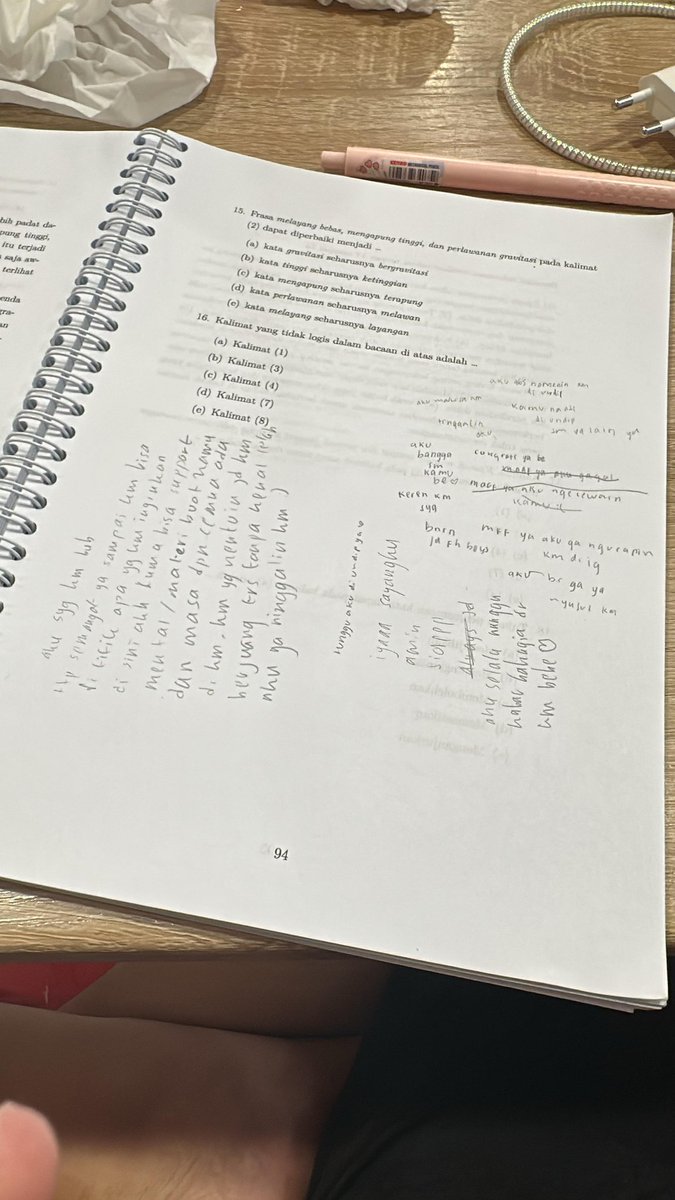 bih padat da-
pung tinggi,
itu terjadi
saja aw-
terlihat
enda
gra-
an
15. Frasa melayang bebas, mengapung tinggi, dan perlawanan gravitasi pada kalimat
(2) dapat diperbaiki menjadi ...
(a) kata gravitasi seharusnya bergravitasi
(b) kata tinggi seharusnya ketinggian
(c) kata mengapung seharusnya terapung
(d) kata perlawanan seharusnya melawan
(e) kata melayang seharusnya layangan
16. Kalimat yang tidak logis dalam bacaan di atas adalah ...
(a) Kalimat (1)
(b) Kalimat (3)
(c) Kalimat (4)
(d) Kalimat (7)
(e) Kalimat (8)
di undip
kamu
di undip
aku
aku
bangga
sm
kamu
be♡
congrats ya be
keren km
syg
maaf ya aku gagal
maaf ya aku
mff ya aku ga
km di ig
aku be ga ya
tunggu aku di undip ya♡
igaaa sayangku
amin
always
aku selalu nunggu
kabar bahagia dr
km bebe ♡
aku syg km bub
ttp semangat ya sampai km bisa
di titik apa yg km inginkan
di sini akh cuma bisa support
mental / materi buat kamu
dan masa dpn semua ada
di km. km yg nentuin jd km
berjuang trs tanpa kenal lelah
aku ga ninggalin km :)
94